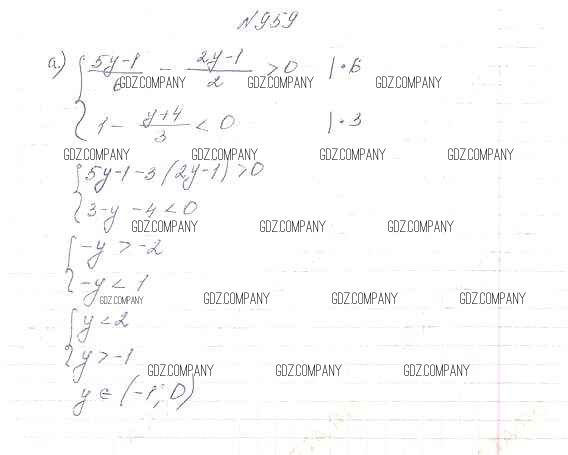 N959
а.) { (5y-1)/6 - (2y-1)/2 > 0 | • 6
GDZ.COMPANY GDZ.COMPANY GDZ.COMPANY
1 - (y+4)/3 < 0 | • 3
GDZ.COMPANY GDZ.COMPANY GDZ.COMPANY GDZ.COMPANY
{ 5y-1-3(2y-1)>0
3-y-4<0
GDZ.COMPANY GDZ.COMPANY GDZ.COMPANY
{ -y > -2
-y < 1
GDZ.COMPANY GDZ.COMPANY GDZ.COMPANY GDZ.COMPANY
{ y<2
y>-1
GDZ.COMPANY GDZ.COMPANY GDZ.COMPANY
y ∈ (-1; D)